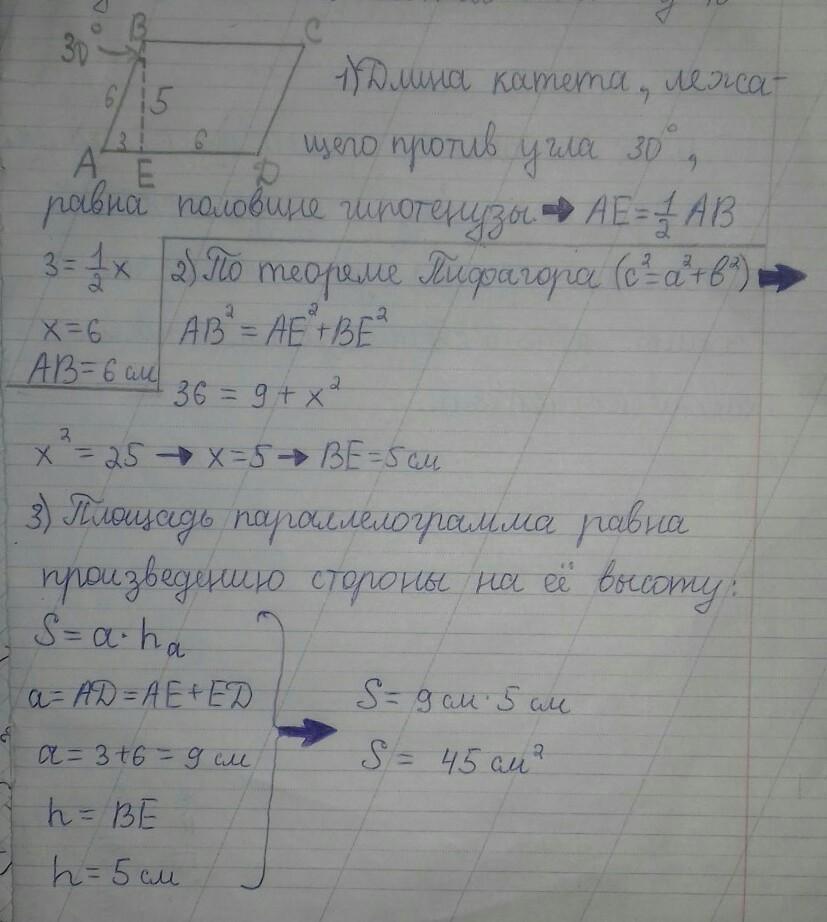 B
C
30°
6
5
3
6
A
E
D
1) Длина катета, лежа-
щего против угла 30°,
равна половине гипотенузы → AE = 1/2 AB
3 = 1/2 x
x = 6
AB = 6 см
2) По теореме Пифагора (c² = a² + b²) →
AB² = AE² + BE²
36 = 9 + x²
x² = 25 → x = 5 → BE = 5 см
3) Площадь параллелограмма равна
произведению стороны на её высоту:
S = a · hₐ
a = AD = AE + ED
a = 3 + 6 = 9 см
h = BE
h = 5 см
→
S = 9 см · 5 см
S = 45 см²